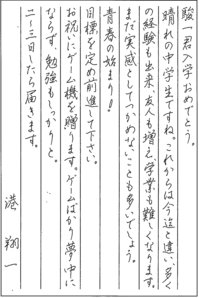 駿一君入学おめでとう。
晴れの中学生ですね。これからは今迄と違い、多く
の経験も出来、友人も増え、学業も難しくなります。
まだ実感としてつかめないことも多いでしょう。
青春の始まり!
目標を定め前進して下さい。
お祝いにゲーム機を贈ります。ゲームばかり夢中に
ならず、勉強もしっかりと。
二~三日したら届きます。
港 翔一